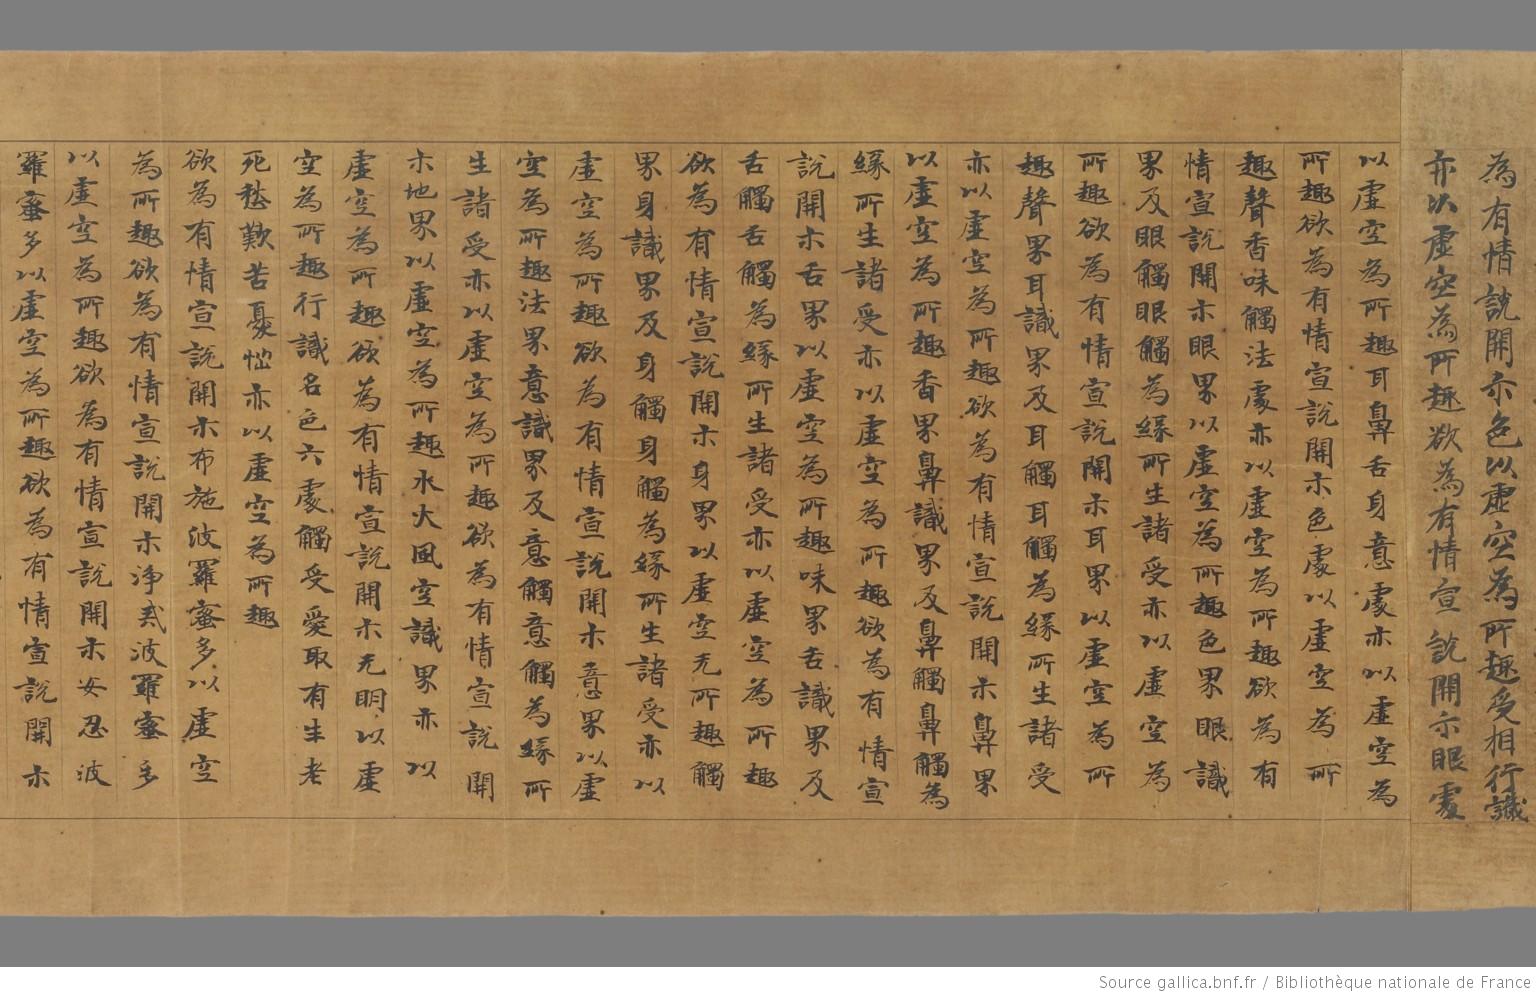 為有情說開示色以虛空為所趣受想行識
亦以虛空為所趣欲為有情宣說開示眼處
以虛空為所趣耳鼻舌身意處亦以虛空為
所趣欲為有情宣說開示色處以虛空為所
趣聲香味觸法處亦以虛空為所趣欲為有
情宣說開示眼界以虛空為所趣色界眼識
界及眼觸眼觸為緣所生諸受亦以虛空為
所趣欲為有情宣說開示耳界以虛空為所
趣聲界耳識界及耳觸耳觸為緣所生諸受
亦以虛空為所趣欲為有情宣說開示鼻界
以虛空為所趣香界鼻識界及鼻觸鼻觸為
緣所生諸受亦以虛空為所趣欲為有情宣
說開示舌界以虛空為所趣味界舌識界及
舌觸舌觸為緣所生諸受亦以虛空為所趣
欲為有情宣說開示身界以虛空為所趣觸
界身識界及身觸身觸為緣所生諸受亦以
虛空為所趣欲為有情宣說開示意界以虛
空為所趣法界意識界及意觸意觸為緣所
生諸受亦以虛空為所趣欲為有情宣說開
示地界以虛空為所趣水火風空識界亦以
虛空為所趣欲為有情宣說開示无明以虛
空為所趣行識名色六處觸受愛取有生老
死愁歎苦憂惱亦以虛空為所趣
欲為有情宣說開示布施波羅蜜多以虛空
為所趣欲為有情宣說開示淨戒波羅蜜多
以虛空為所趣欲為有情宣說開示安忍波
羅蜜多以虛空為所趣欲為有情宣說開示
Source gallica.bnf.fr / Bibliothèque nationale de France